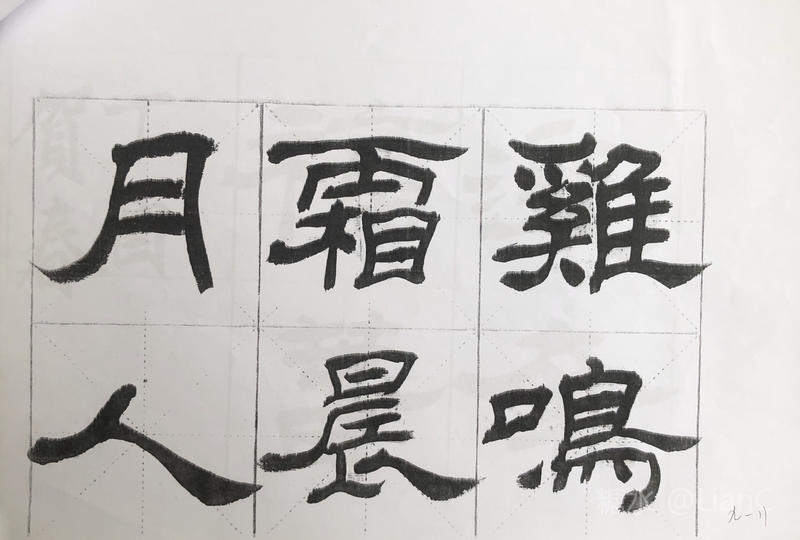 雞鳴
霜晨
月人
糖水 @LianC
九一11